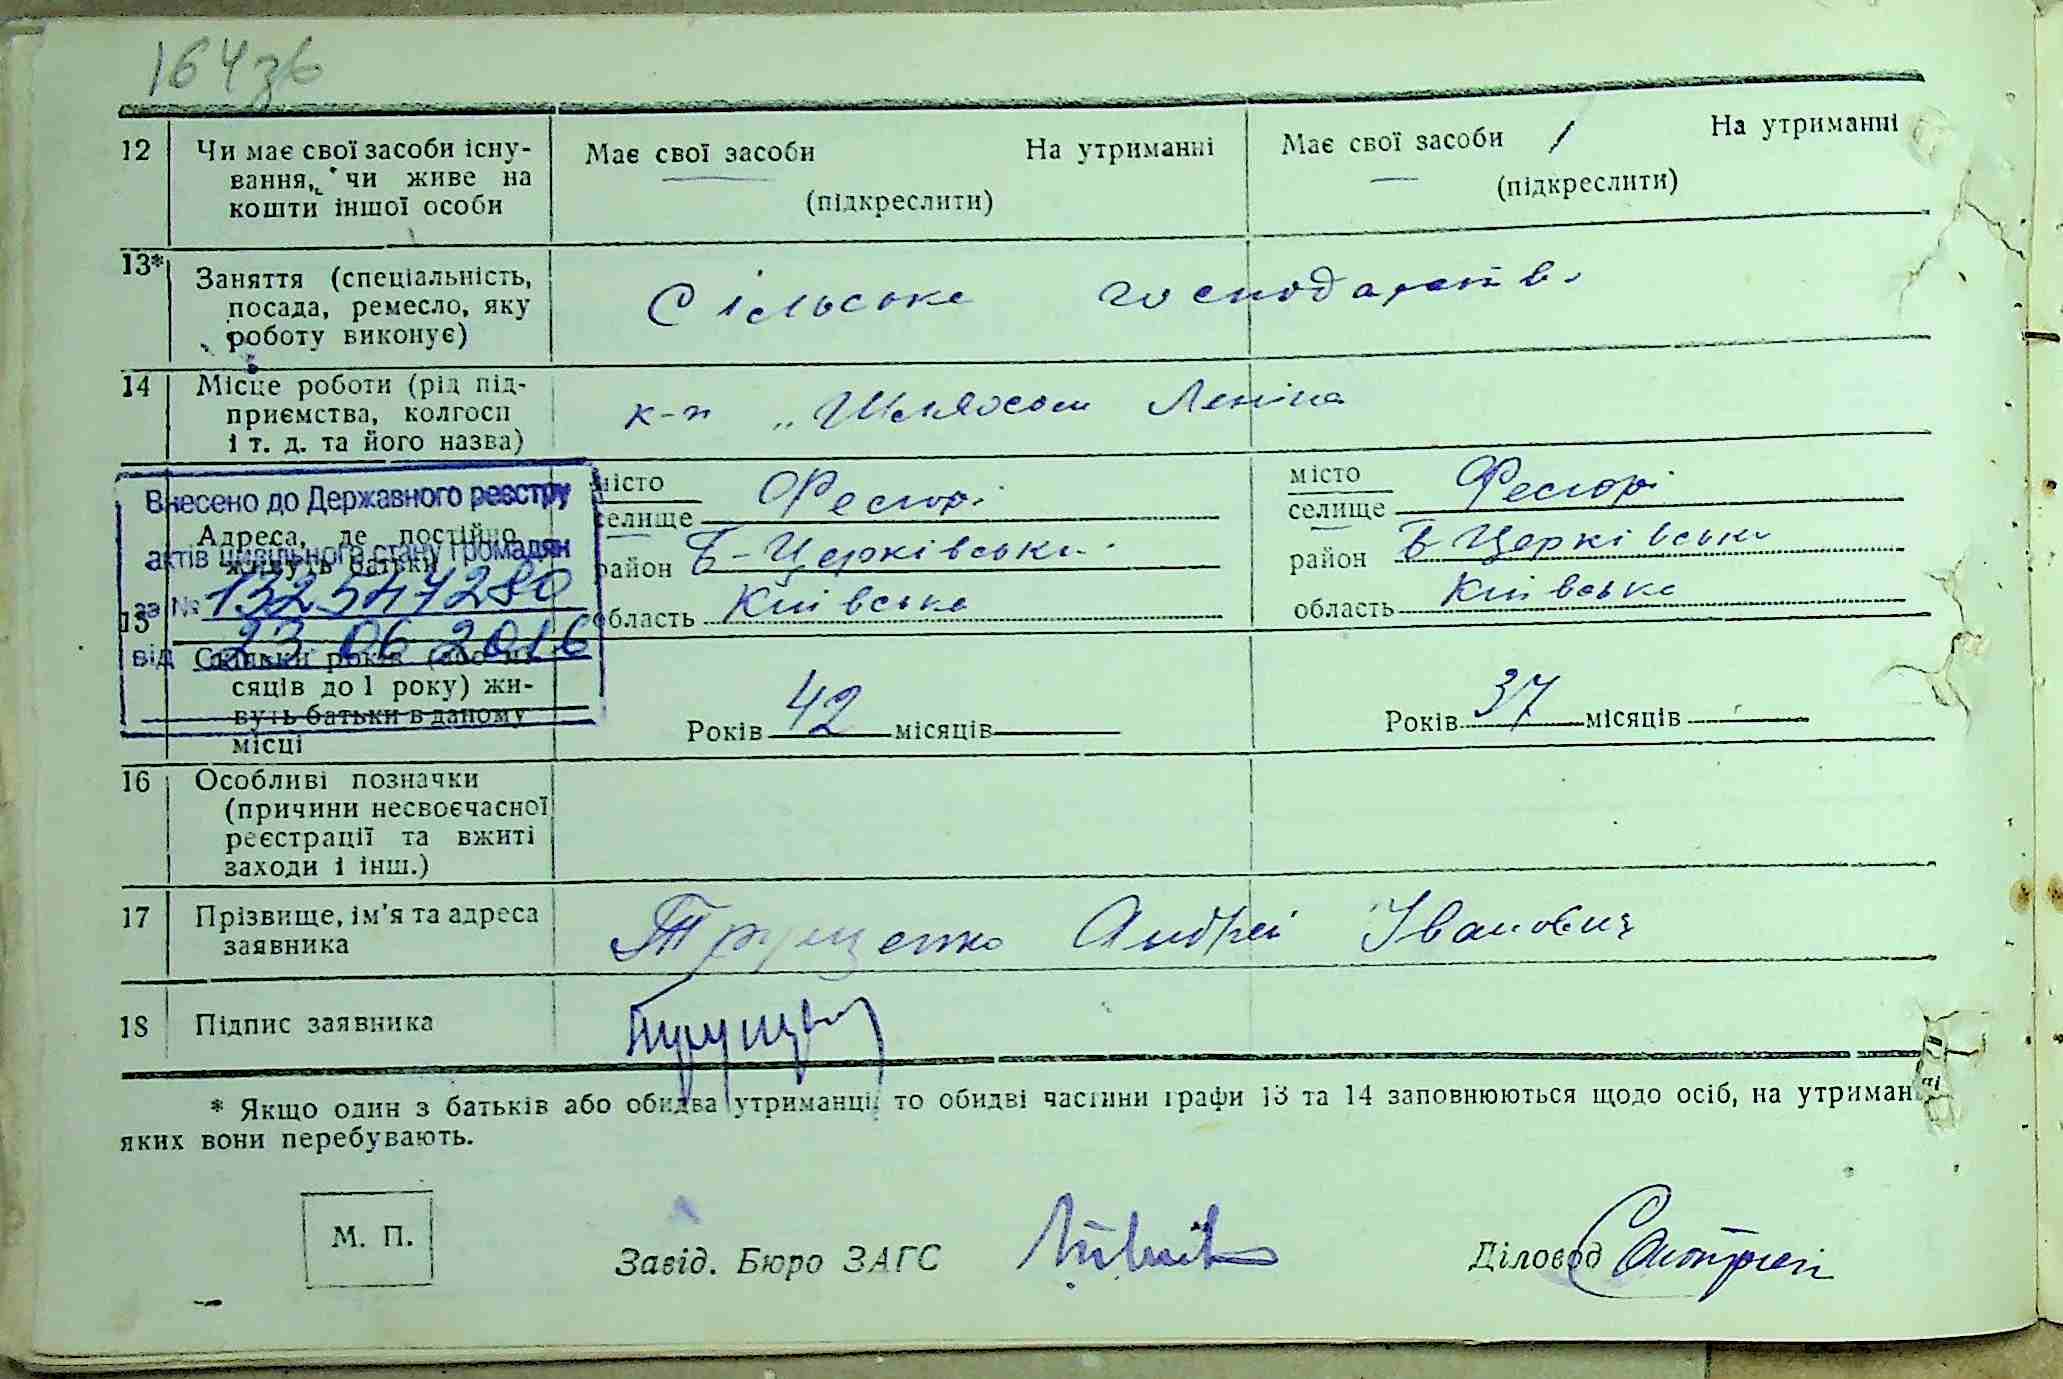 164зв
12 Чи має свої засоби існу-
вання, чи живе на
кошти іншої особи
Має свої засоби На утриманні
(підкреслити)
Має свої засоби На утриманні
(підкреслити)
13* Заняття (спеціальність,
посада, ремесло, яку
роботу виконує)
Сільське господарство
14 Місце роботи (рід під-
приємства, колгосп
і т. д. та його назва)
к-п „Шляхом Леніна
Внесено до Державного реєстру
актів цивільного стану громадян
за № 132547280
від 23.06.2016
15 Адреса, де постійно
живуть батьки
місто
селище
район Б-Церківськи
область Київська
місто
селище
район Б Церківськи
область Київська
Скільки років (або мі-
сяців до 1 року) жи-
вуть батьки в даному
місці
Років 42 місяців
Років 37 місяців
16 Особливі позначки
(причини несвоєчасної
реєстрації та вжиті
заходи і інш.)
17 Прізвище, ім'я та адреса
заявника
Трущенко Андрей Іванович
18 Підпис заявника
* Якщо один з батьків або обидва утриманці, то обидві частини графи 13 та 14 заповнюються щодо осіб, на утриман
яких вони перебувають.
М. П.
Завід. Бюро ЗАГС
Діловод